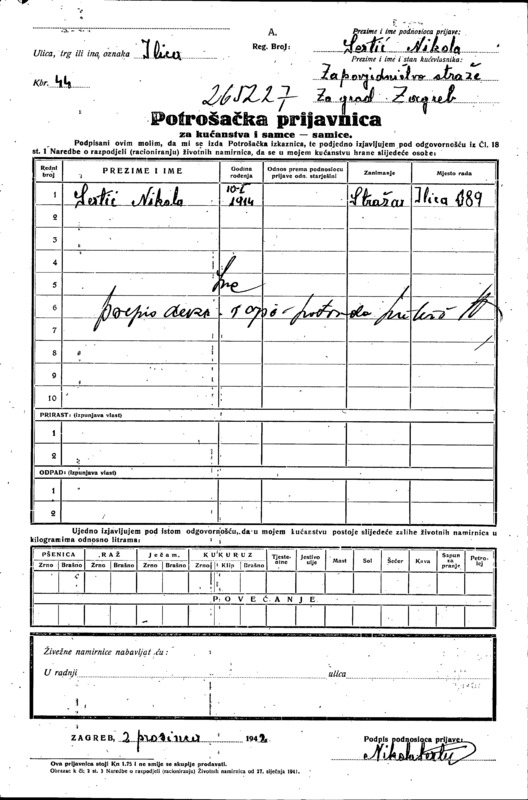 A.
Prezime i ime podnosioca prijave:
Ulica, trg ili ina oznaka Ilica
Reg. Broj:
Lestić Nikola
Prezime i ime i stan kućevlasnika:
Kbr. 44
Zapovjedništvo straže
265227
Za grad Zagreb
Potrošačka prijavnica
za kućanstva i samce — samice.
Podpisani ovim molim, da mi se izda Potrošačka izkaznica, te podjedno izjavljujem pod odgovornošću iz Čl. 18
st. 1 Naredbe o razpodjeli (racioniranju) životnih namirnica, da se u mojem kućanstvu hrane slijedeće osobe:
Redni broj PREZIME I IME Godina rođenja Odnos prema podnosiocu prijave ods. starješini Zanimanje Mjesto rada
1 Lestić Nikola 10-I 1914 Stražar Ilica 189
2
3
4
5
6
7
8
9
10
PRIRAST: (izpunjava vlast)
1
2
ODPAD: (izpunjava vlast)
1
2
Ujedno izjavljujem pod istom odgovornošću, da u mojem kućanstvu postoje slijedeće zalihe životnih namirnica u
kilogramima odnosno litrama:
PŠENICA RAŽ Ječam KUKURUZ Tjestenine Jestivo ulje Mast Sol Šećer Kava Sapun za pranje Petrolej
Zrno Brašno Zrno Brašno Zrno Brašno Zrno Klip Brašno
POVEĆANJE
Živežne namirnice nabavljat ću:
U radnji ulica
ZAGREB, 2 prosinca 1942
Podpis podnosioca prijave:
Nikola
Ova prijavnica stoji Kn 1.75 i ne smije se skuplje prodavati.
Obrazac k čl. 2 st. 3 Naredbe o razpodjeli (racioniranju) Životnih namirnica od 27. siječnja 1941.